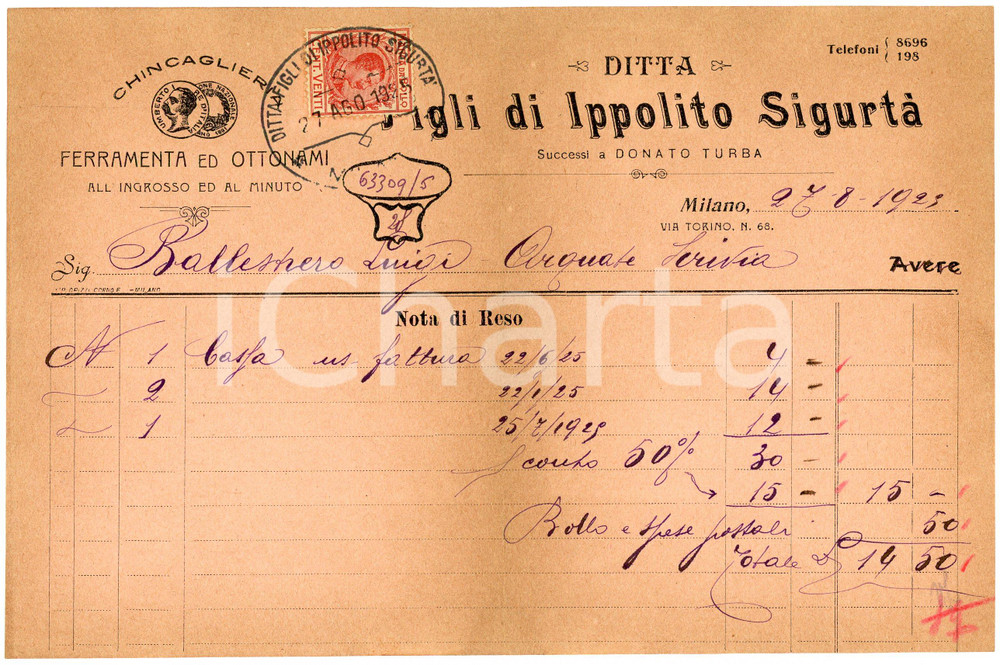 Telefoni { 8696
198
DITTA
Figli di Ippolito Sigurtà
Successi a DONATO TURBA
CHINCAGLIERI
UMBERTO I
FERRAMENTA ED OTTONAMI
ALL'INGROSSO ED AL MINUTO
DITTA FIGLI DI IPPOLITO SIGURTÀ
27 AGO 1925
CENT. VENTI
63309/5
Milano, 27-8-1925
VIA TORINO, N. 68.
Sig. Ballestrero Luigi - Arquate Scrivia Avere
Nota di Reso
N 1 Cassa ns. fattura 22/6/25 4 -
2 22/1/25 14 -
1 25/7/1925 12 -
Sconto 50% 30 -
15 - 15 -
Bollo e spese postali 50
Totale L 14 50
iCharta